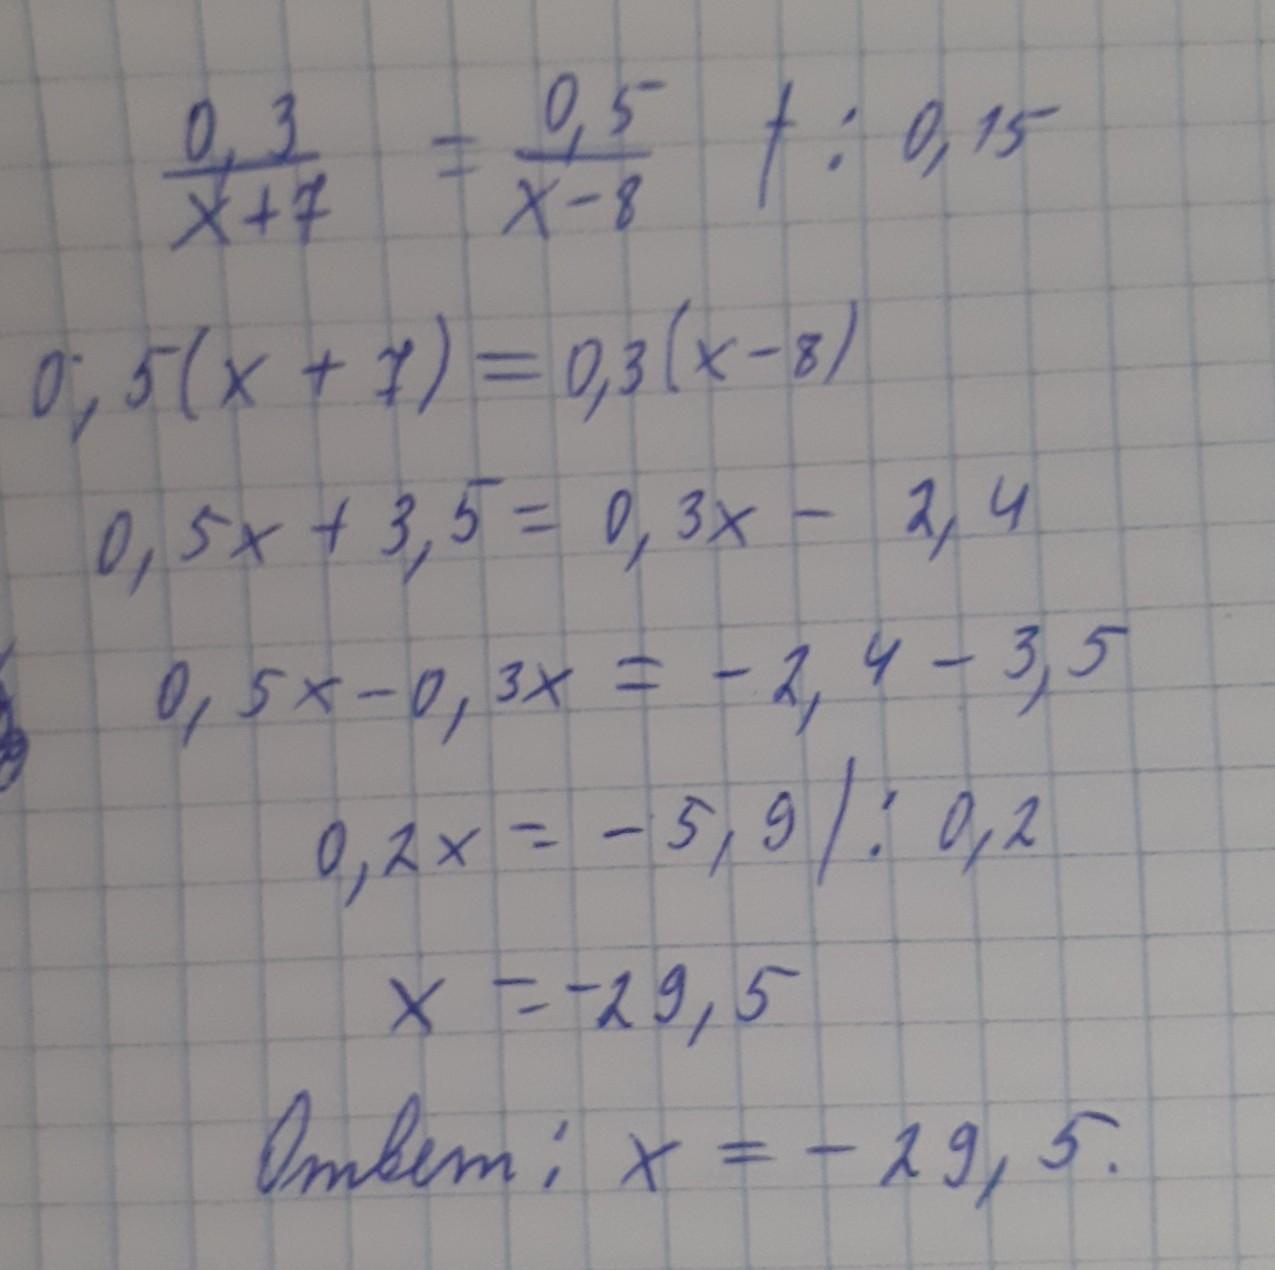 0,3/(x+7) = 0,5/(x-8) | : 0,15
0,5(x + 7) = 0,3(x-8)
0,5x + 3,5 = 0,3x - 2,4
0,5x - 0,3x = -2,4 - 3,5
0,2x = -5,9 | : 0,2
x = -29,5
Ответ: x = -29,5.